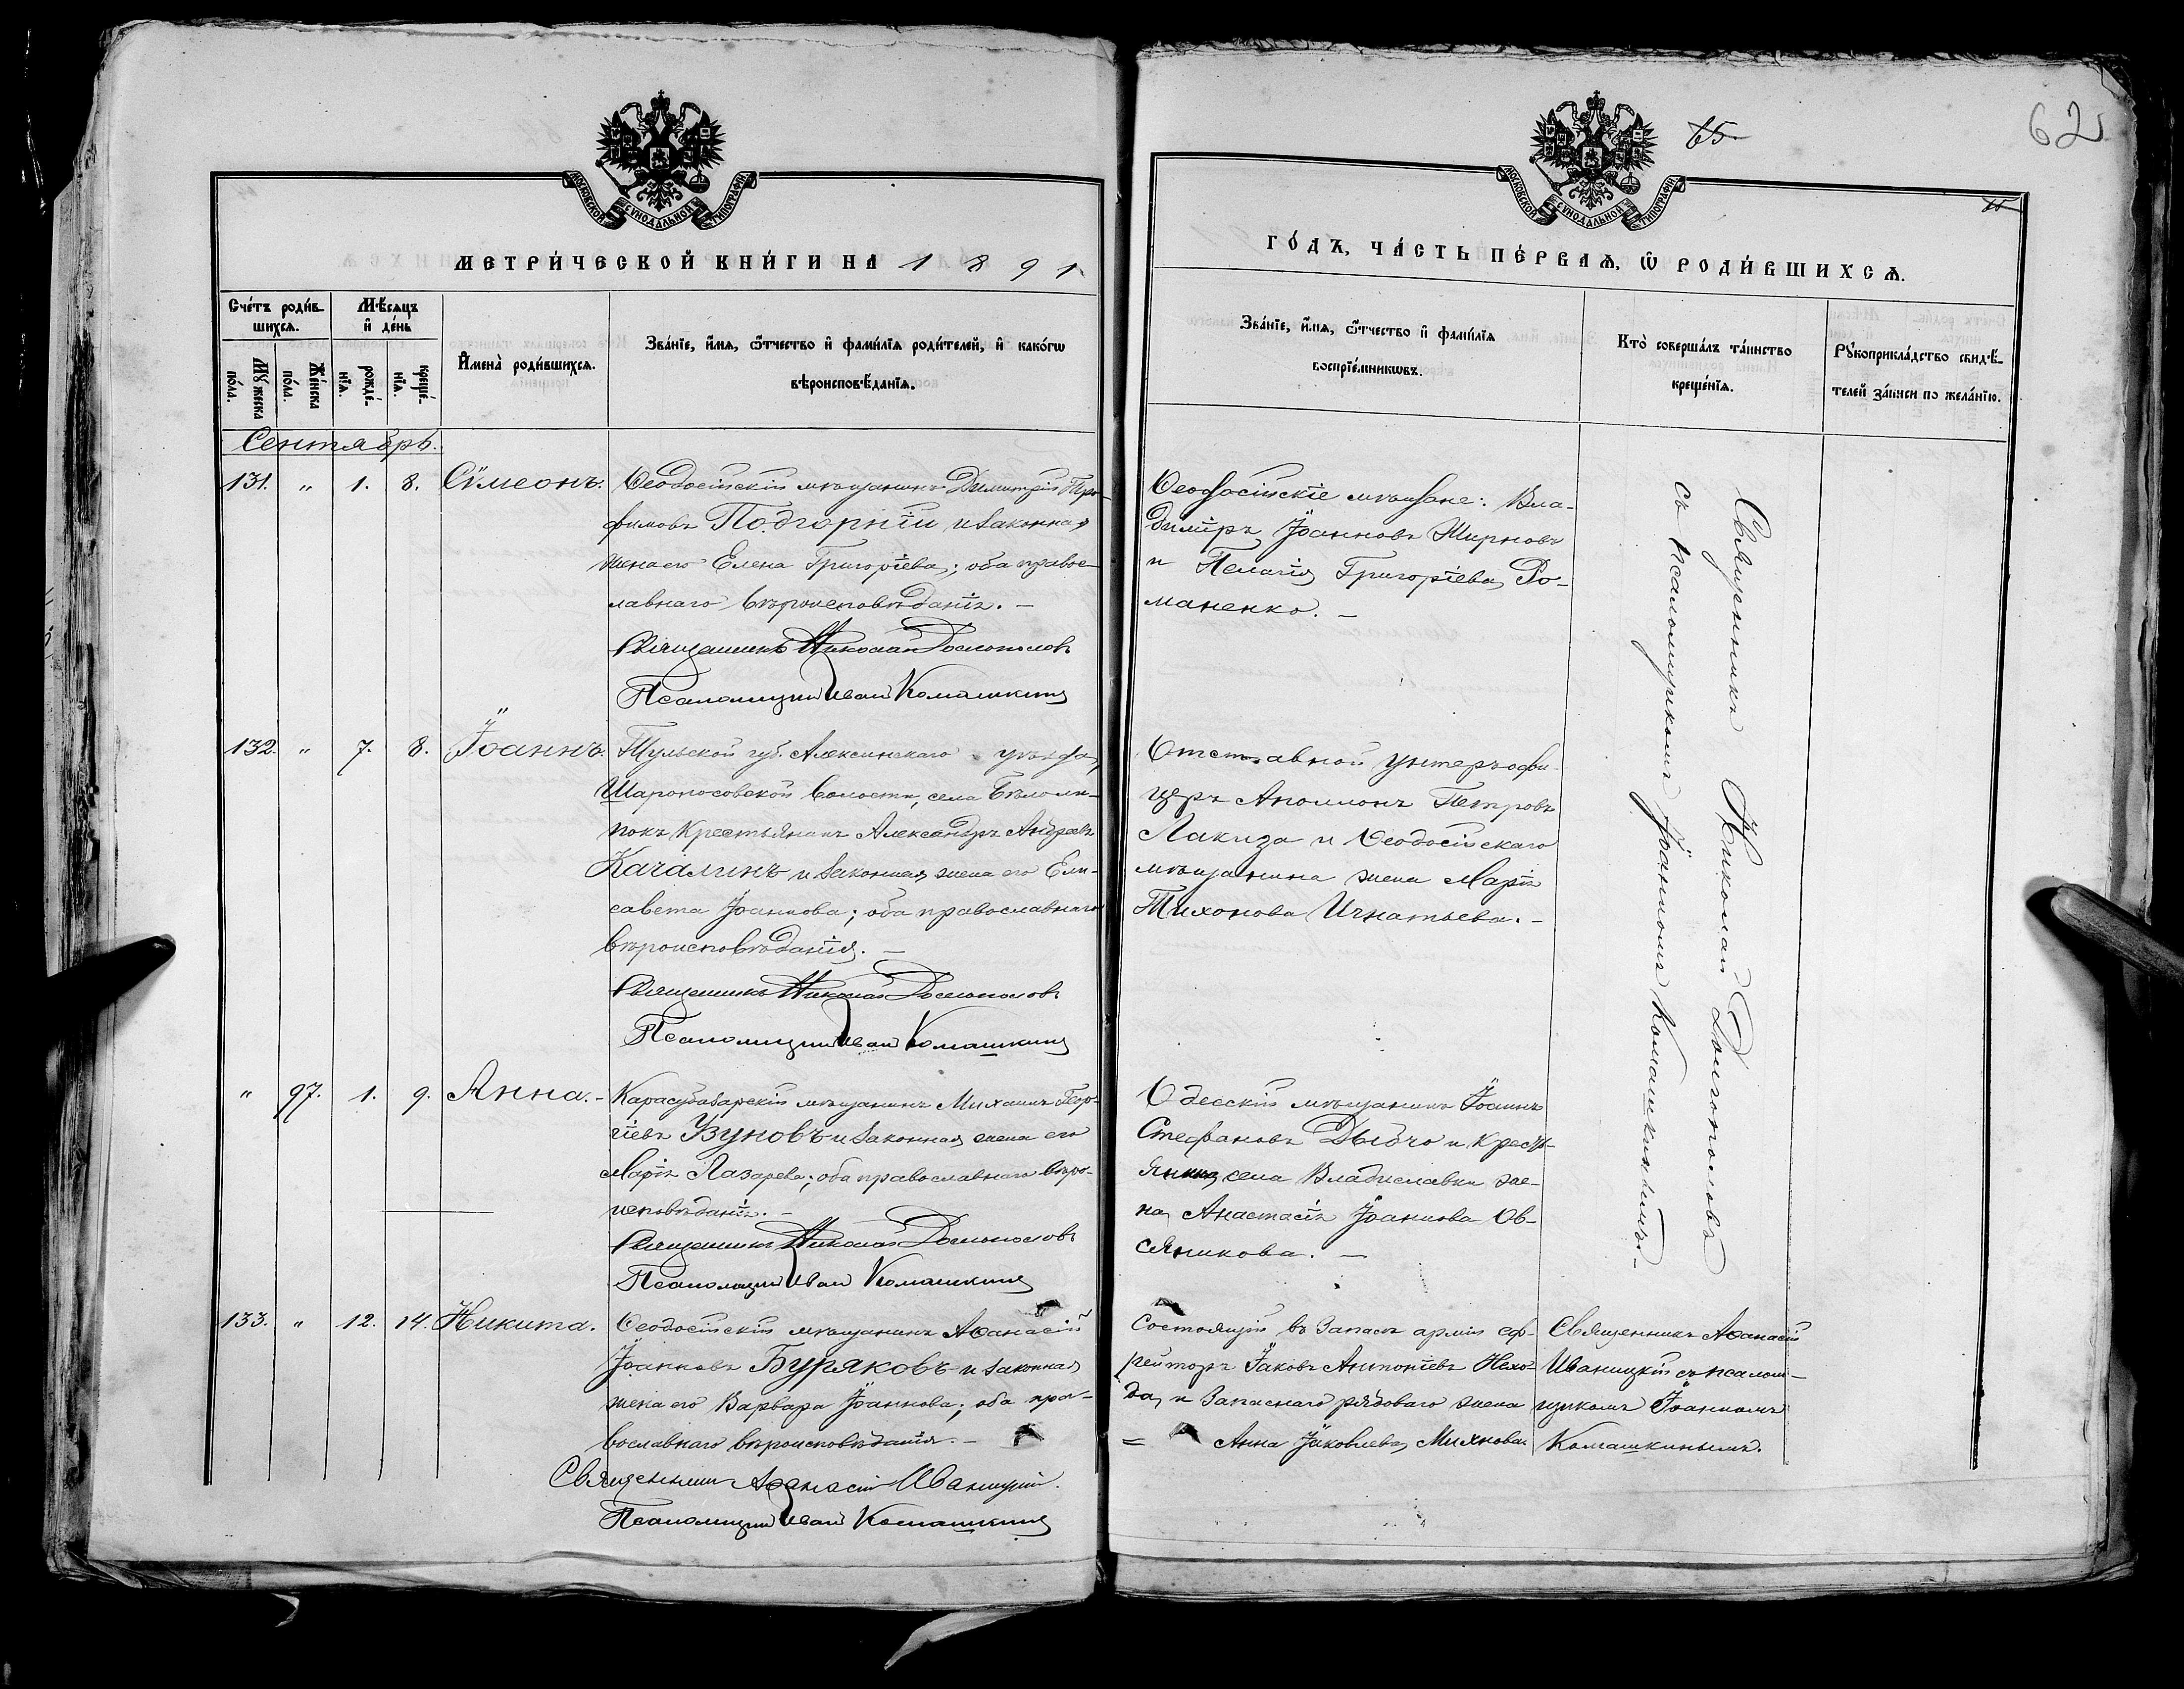 65
62
65
МОСКОВСКОЙ СѴНОДАЛЬНОЙ ТИПОГРАФІИ
МЕТРИ́ЧЕСКОЙ КНИ́ГИ НА 1891
Сче́тъ роди́в-
шихсѧ.
Мѣ́сѧцъ
и҆ де́нь
Мꙋ́жеска
по́ла.
Же́нска
по́ла.
рожде́-
нїѧ.
креще́-
нїѧ.
И҆мена̀ роди́вшихсѧ.
Зва́нїе, и҆́мѧ, ѻ҆́тчество и҆ фами́лїѧ роди́телей, и҆ како́гѡ
вѣроисповѣ́данїѧ.
Сентябрь.
131. " 1. 8. Сѵмеонъ.
Ѳеодосійскій мѣщанинъ Димитрій Тро-
фимовъ Подгорній и законная
жена его Елена Григоріева; оба правос-
лавнаго вѣроисповѣданія. –
Священникъ Николай Долгополовъ
Псаломщикъ Иван Комашкинъ
132. " 7. 8. Іоаннъ.
Тульской губ. Алексинскаго уѣзда,
Шароносовской волости, села Бѣлоли-
покъ крестьянинъ Александръ Андреевъ
Качалинъ и законная жена его Ели-
савета Іоаннова; оба православнаго
вѣроисповѣданія. –
Священникъ Николай Долгополовъ
Псаломщикъ Иван Комашкинъ
" 97. 1. 9. Анна. –
Карасубазарскій мѣщанинъ Михаилъ Геор-
гіевъ Узуновъ и законная жена его
Марія Лазарева; оба православнаго вѣро-
исповѣданія. –
Священникъ Николай Долгополовъ
Псаломщикъ Иван Комашкинъ
133. " 12. 14. Никита.
Ѳеодосійскій мѣщанинъ Аѳанасій
Іоанновъ Буряковъ и законная
жена его Варвара Іоаннова; оба пра-
вославнаго вѣроисповѣданія. –
Священникъ Аѳанасій Иваницкій.
Псаломщикъ Иван Комашкинъ
МОСКОВСКОЙ СѴНОДАЛЬНОЙ ТИПОГРАФІИ
ГО́ДЪ, ЧА́СТЬ ПЕ́РВАѦ, Ѡ҆ РОДИ́ВШИХСѦ.
Зва́нїе, и҆́мѧ, ѻ҆́тчество и҆ фами́лїѧ
воспрїе́мникѡвъ.
Кто̀ соверша́лъ та́инство
креще́нїѧ.
Рꙋкоприкла́дство свидѣ́-
телей за́писи по жела́нїю.
Ѳеодосійскіе мѣщане: Вла-
димиръ Іоанновъ Жирновъ
и Пелагія Григоріева Ро-
маненко. –
Отставной унтеръ-офи-
церъ Аполлонъ Петровъ
Лакиза и Ѳеодосійскаго
мѣщанина жена Марія
Тихонова Игнатьева. –
Одесскій мѣщанинъ Іоаннъ
Стефановъ Дыбчо и кресть-
янина села Владиславки же-
на Анастасія Іоаннова Ов-
сяникова. –
Состоящій въ запасѣ арміи еф-
рейторъ Іаковъ Антоніевъ Нехо-
да и запаснаго рядоваго жена
= Анна Іаковлева Михнова.
Священникъ Николай Долгополовъ
съ псаломщикомъ Іоанномъ Комашкинымъ. –
Священникъ Аѳанасій
Иваницкій съ псалом-
щикомъ Іоанномъ
Комашкинымъ.